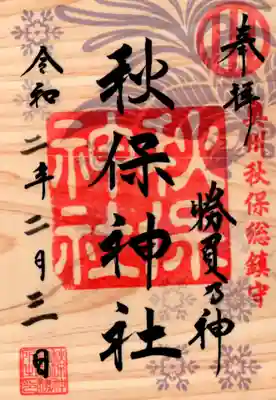 奉拝
奥州秋保総鎮守
勝負乃神
秋保神社
秋保神社
令和二年二月三日